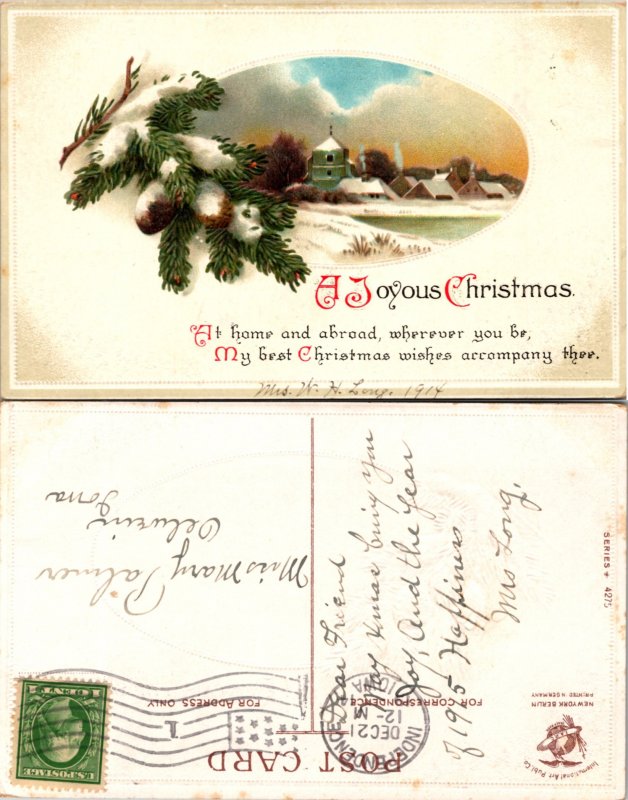 A Joyous Christmas.
At home and abroad, wherever you be,
My best Christmas wishes accompany thee.
Mrs. W. H. Long. 1914
POST CARD
FOR CORRESPONDENCE
FOR ADDRESS ONLY
INDEPENDENCE
DEC 21
12-M
IOWA
1
U.S. POSTAGE
1 CENT 1
Dear Friend
May Xmas bring you
Joy, and the Year
of 1915 Happiness
Mrs Long.
Miss Mary Palmer
Oelwein
Iowa
SERIES 4275
International Art Publ. Co.
NEW YORK BERLIN
PRINTED IN GERMANY